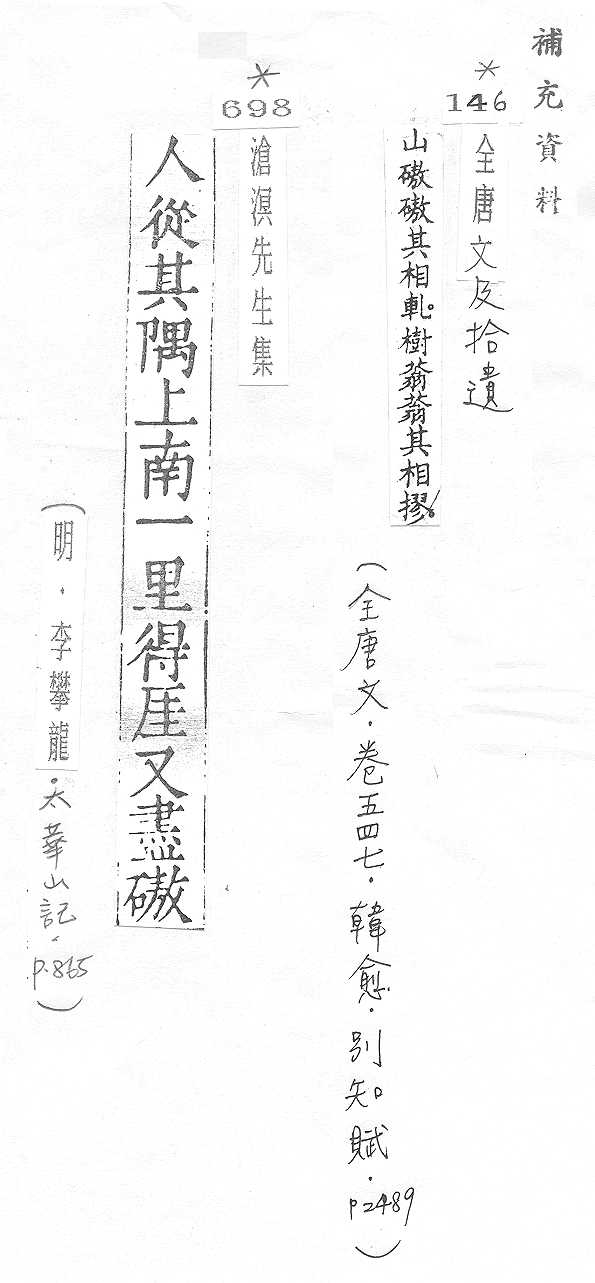 補充資料
*
146
全唐文及拾遺
山磝磝其相軋。樹蓊蓊其相摎。
(全唐文．卷五四七．韓愈．別知賦．p2489)
*
698
滄溟先生集
人從其隅上南一里得厓又盡磝
(明．李攀龍．太華山記．p.865)